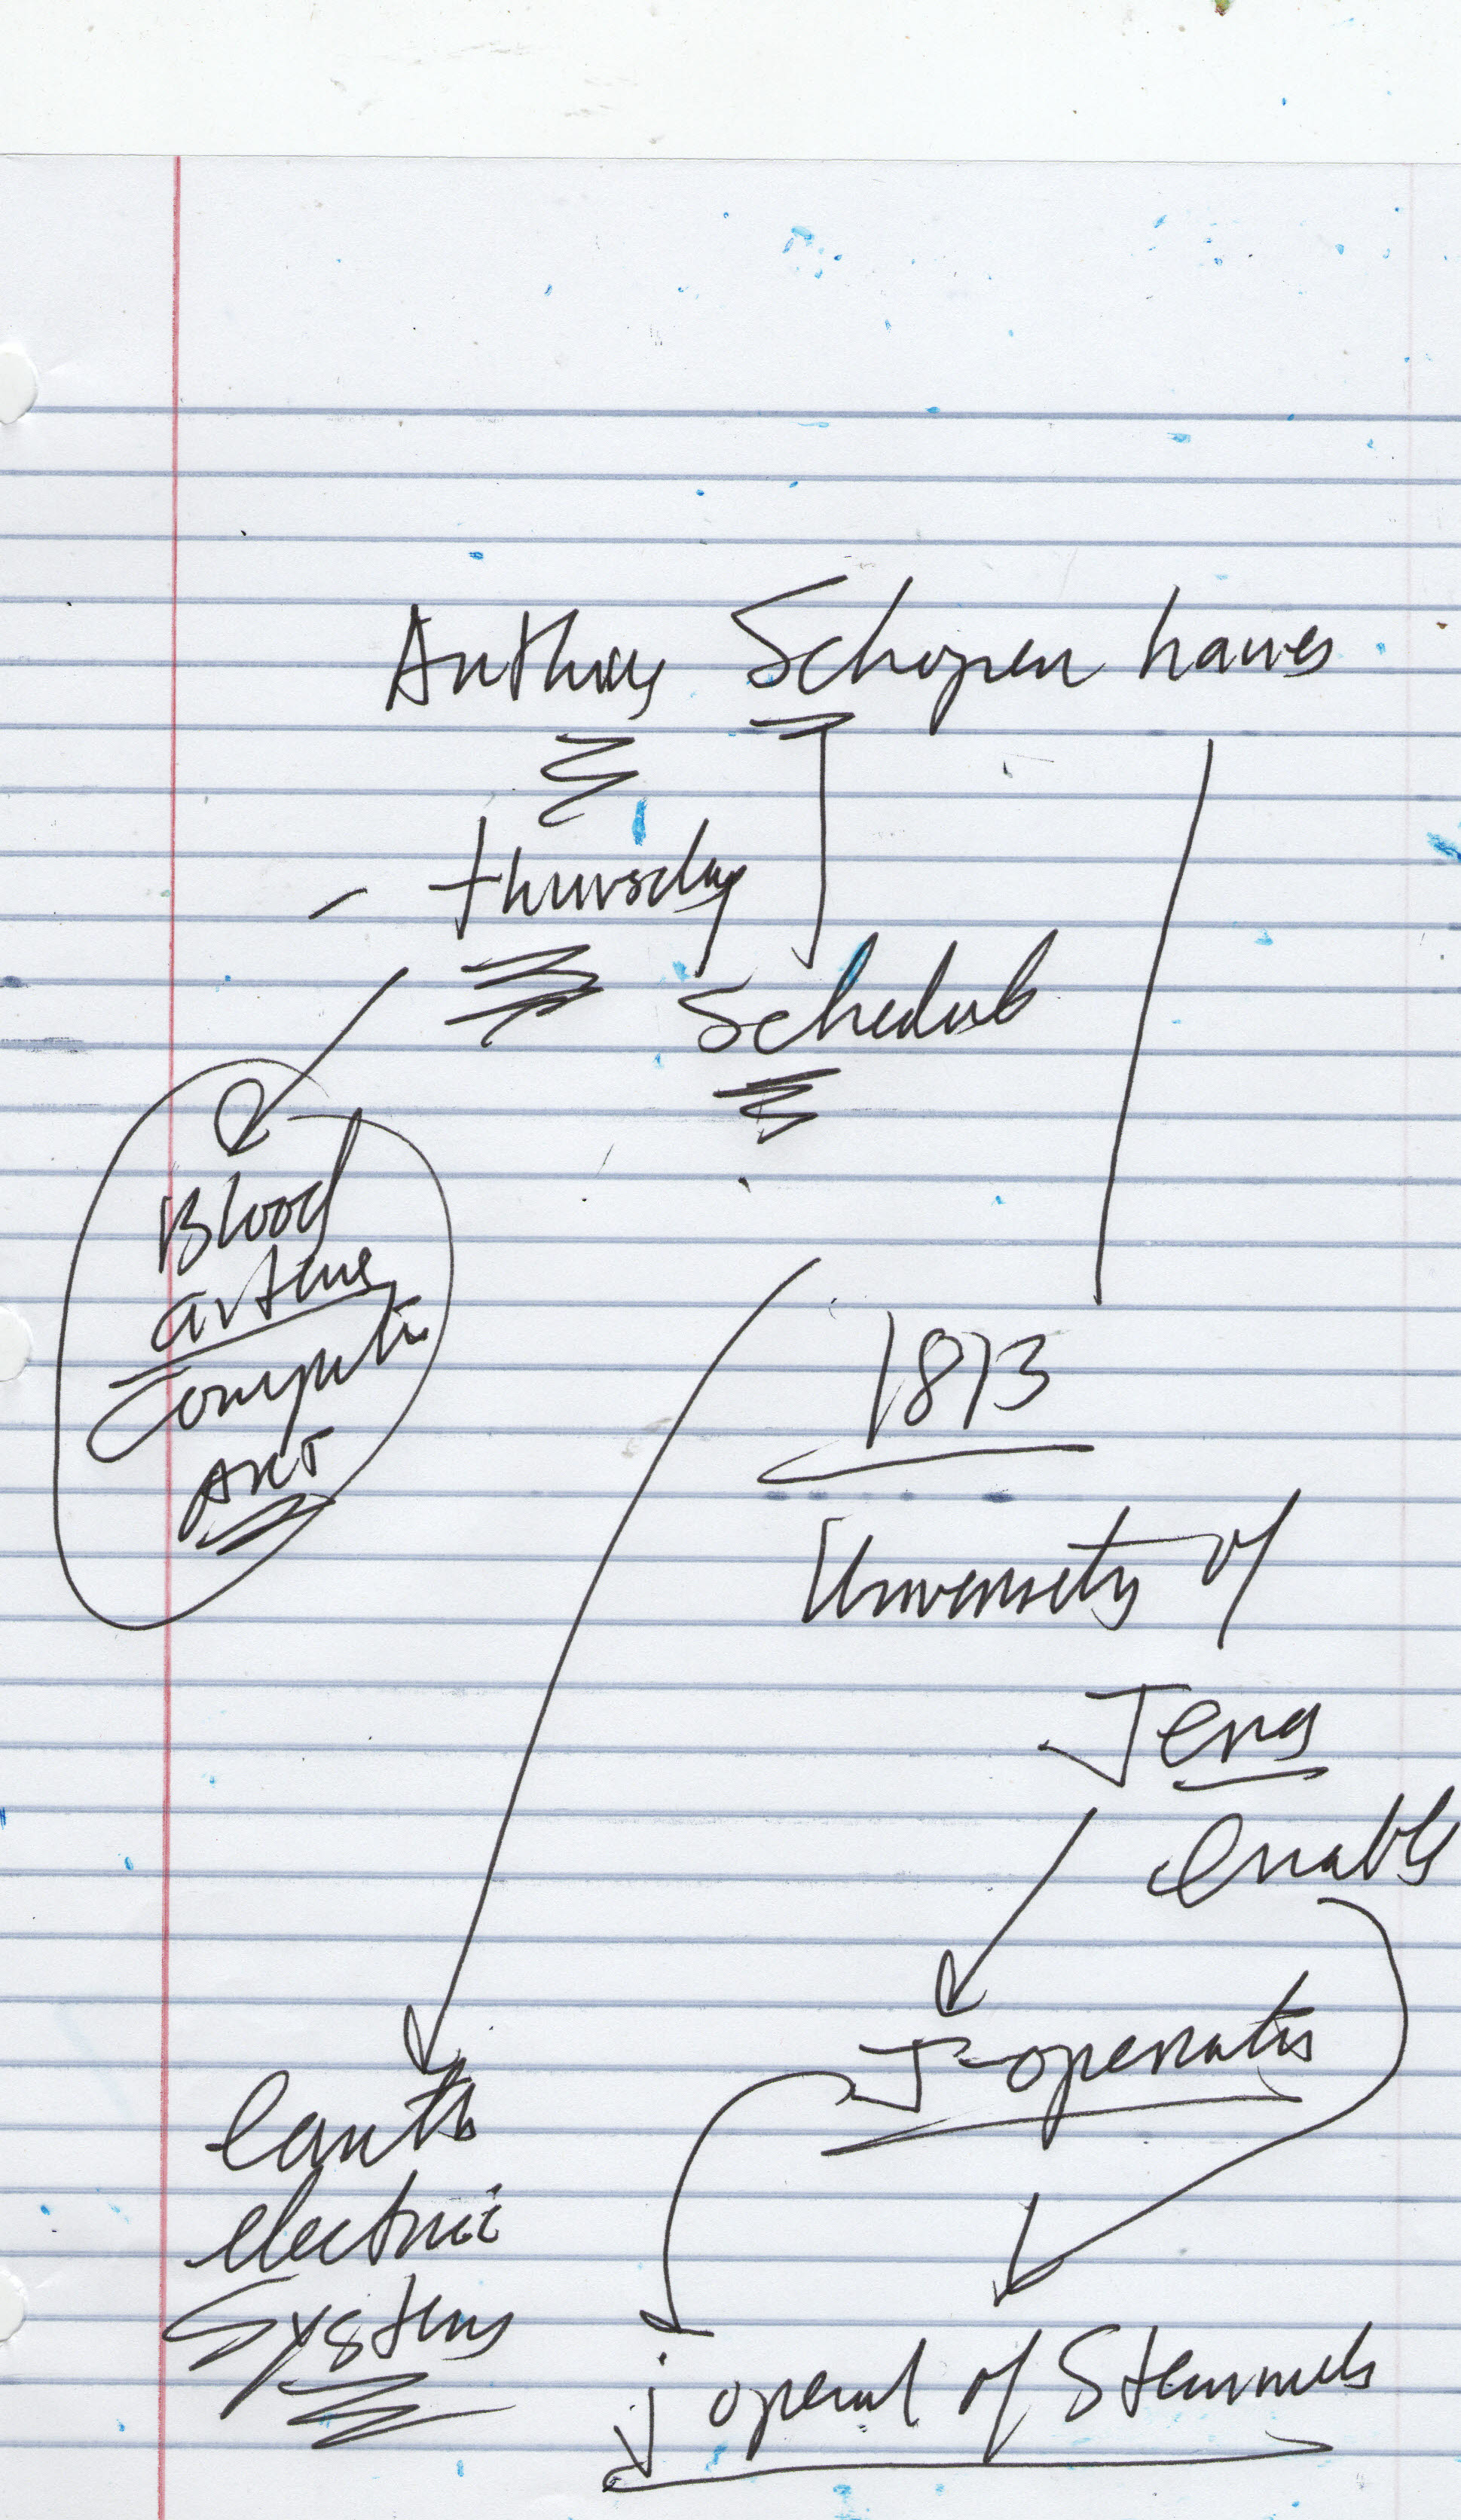 Schopen hawes
thursday
Schedule
Blood
Computi
ART
1873
University of
Jena
enable
J-operates
earth
electric
Systems
j operal of